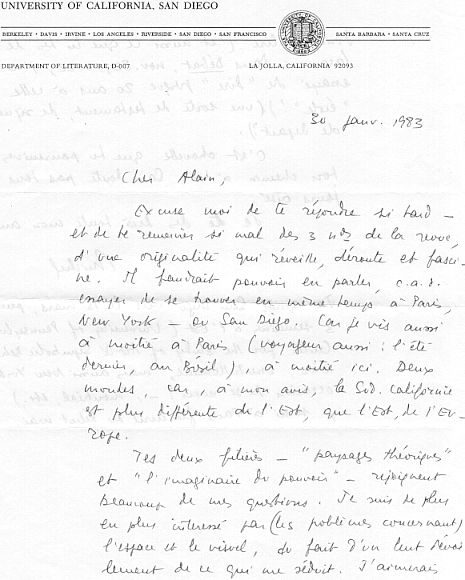 UNIVERSITY OF CALIFORNIA, SAN DIEGO
BERKELEY • DAVIS • IRVINE • LOS ANGELES • RIVERSIDE • SAN DIEGO • SAN FRANCISCO
SANTA BARBARA • SANTA CRUZ
DEPARTMENT OF LITERATURE, D-007
LA JOLLA, CALIFORNIA 92093
30 janv. 1983
Cher Alain,
Excuse moi de te répondre si tard —
et de te remercier si mal des 3 nos de la revue,
d'une originalité qui réveille, déroute et fasci-
ne. Il faudrait pouvoir en parler, c.a.d.
essayer de se trouver en même temps à Paris,
New York — ou San Diego. Car je vis aussi
à moitié à Paris (voyageur aussi : l'été
dernier, au Brésil), à moitié ici. Deux
mondes, car, à mon avis, la Sud. Californie
est plus différente de l'Est, que l'Est, de l'Eu-
rope.
Tes deux filières — "paysages théoriques"
et "l'imaginaire du pouvoir" — rejoignent
beaucoup de mes questions. Je suis de plus
en plus intéressé par (les problèmes concernant)
l'espace et le visuel, du fait d'un lent dévoi-
lement de ce qui me séduit. J'aimerais